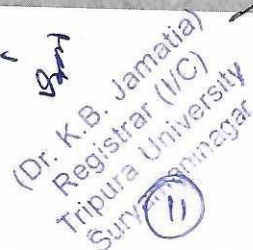 (Dr. K.B. Jamatia)
Registrar (I/C)
Tripura University
Suryamaninagar
11